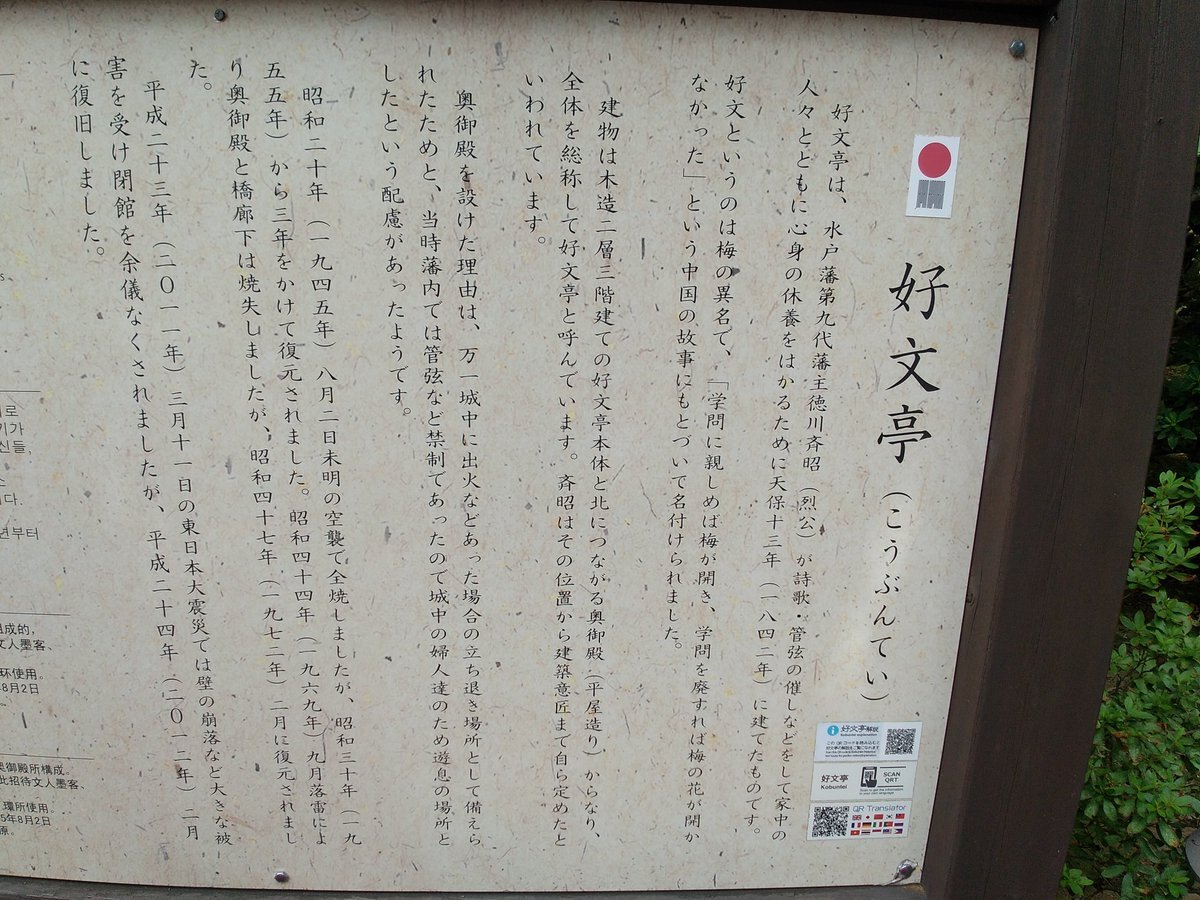 好文亭(こうぶんてい)
好文亭は、水戸藩第九代藩主徳川斉昭(烈公)が詩歌・管弦の催しなどをして家中の
人々とともに心身の休養をはかるために天保十三年(一八四二年)に建てたものです。
好文というのは梅の異名で、「学問に親しめば梅が開き、学問を廃すれば梅の花が開か
なかった」という中国の故事にもとづいて名付けられました。
建物は木造二層三階建ての好文亭本体と北につながる奥御殿(平屋造り)からなり、
全体を総称して好文亭と呼んでいます。斉昭はその位置から建築意匠まで自ら定めたと
いわれています。
奥御殿を設けた理由は、万一城中に出火などあった場合の立ち退き場所として備えら
れたためと、当時藩内では管弦など禁制であったので城中の婦人達のため遊息の場所と
したという配慮があったようです。
昭和二十年(一九四五年)八月二日未明の空襲で全焼しましたが、昭和三十年(一九
五五年)から三年をかけて復元されました。昭和四十四年(一九六九年)九月落雷によ
り奥御殿と橋廊下は焼失しましたが、昭和四十七年(一九七二年)二月に復元されまし
た。
平成二十三年(二〇一一年)三月十一日の東日本大震災では壁の崩落など大きな被
害を受け閉館を余儀なくされましたが、平成二十四年(二〇一二年)二月
に復旧しました。
好文亭解説
Kobuntei explanation
このQRコードを読み込むと
好文亭の解説をご覧になれます
好文亭
Kobuntei
SCAN
QRT
QR Translator
로
기가
신들,
다.
년부터
组成的,
文人墨客、
环使用。
年8月2日
奧御殿所構成。
此招待文人墨客、
環所使用。
5年8月2日
原。